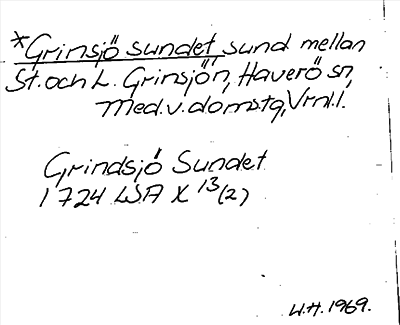 *Grinsjö sundet, sund mellan
St. och L. Grinsjön, Haverö sn,
Med.v.domstg, Vrnl.l.
Grindsjö Sundet
1724 LSA X 13(2)
W.H. 1969.